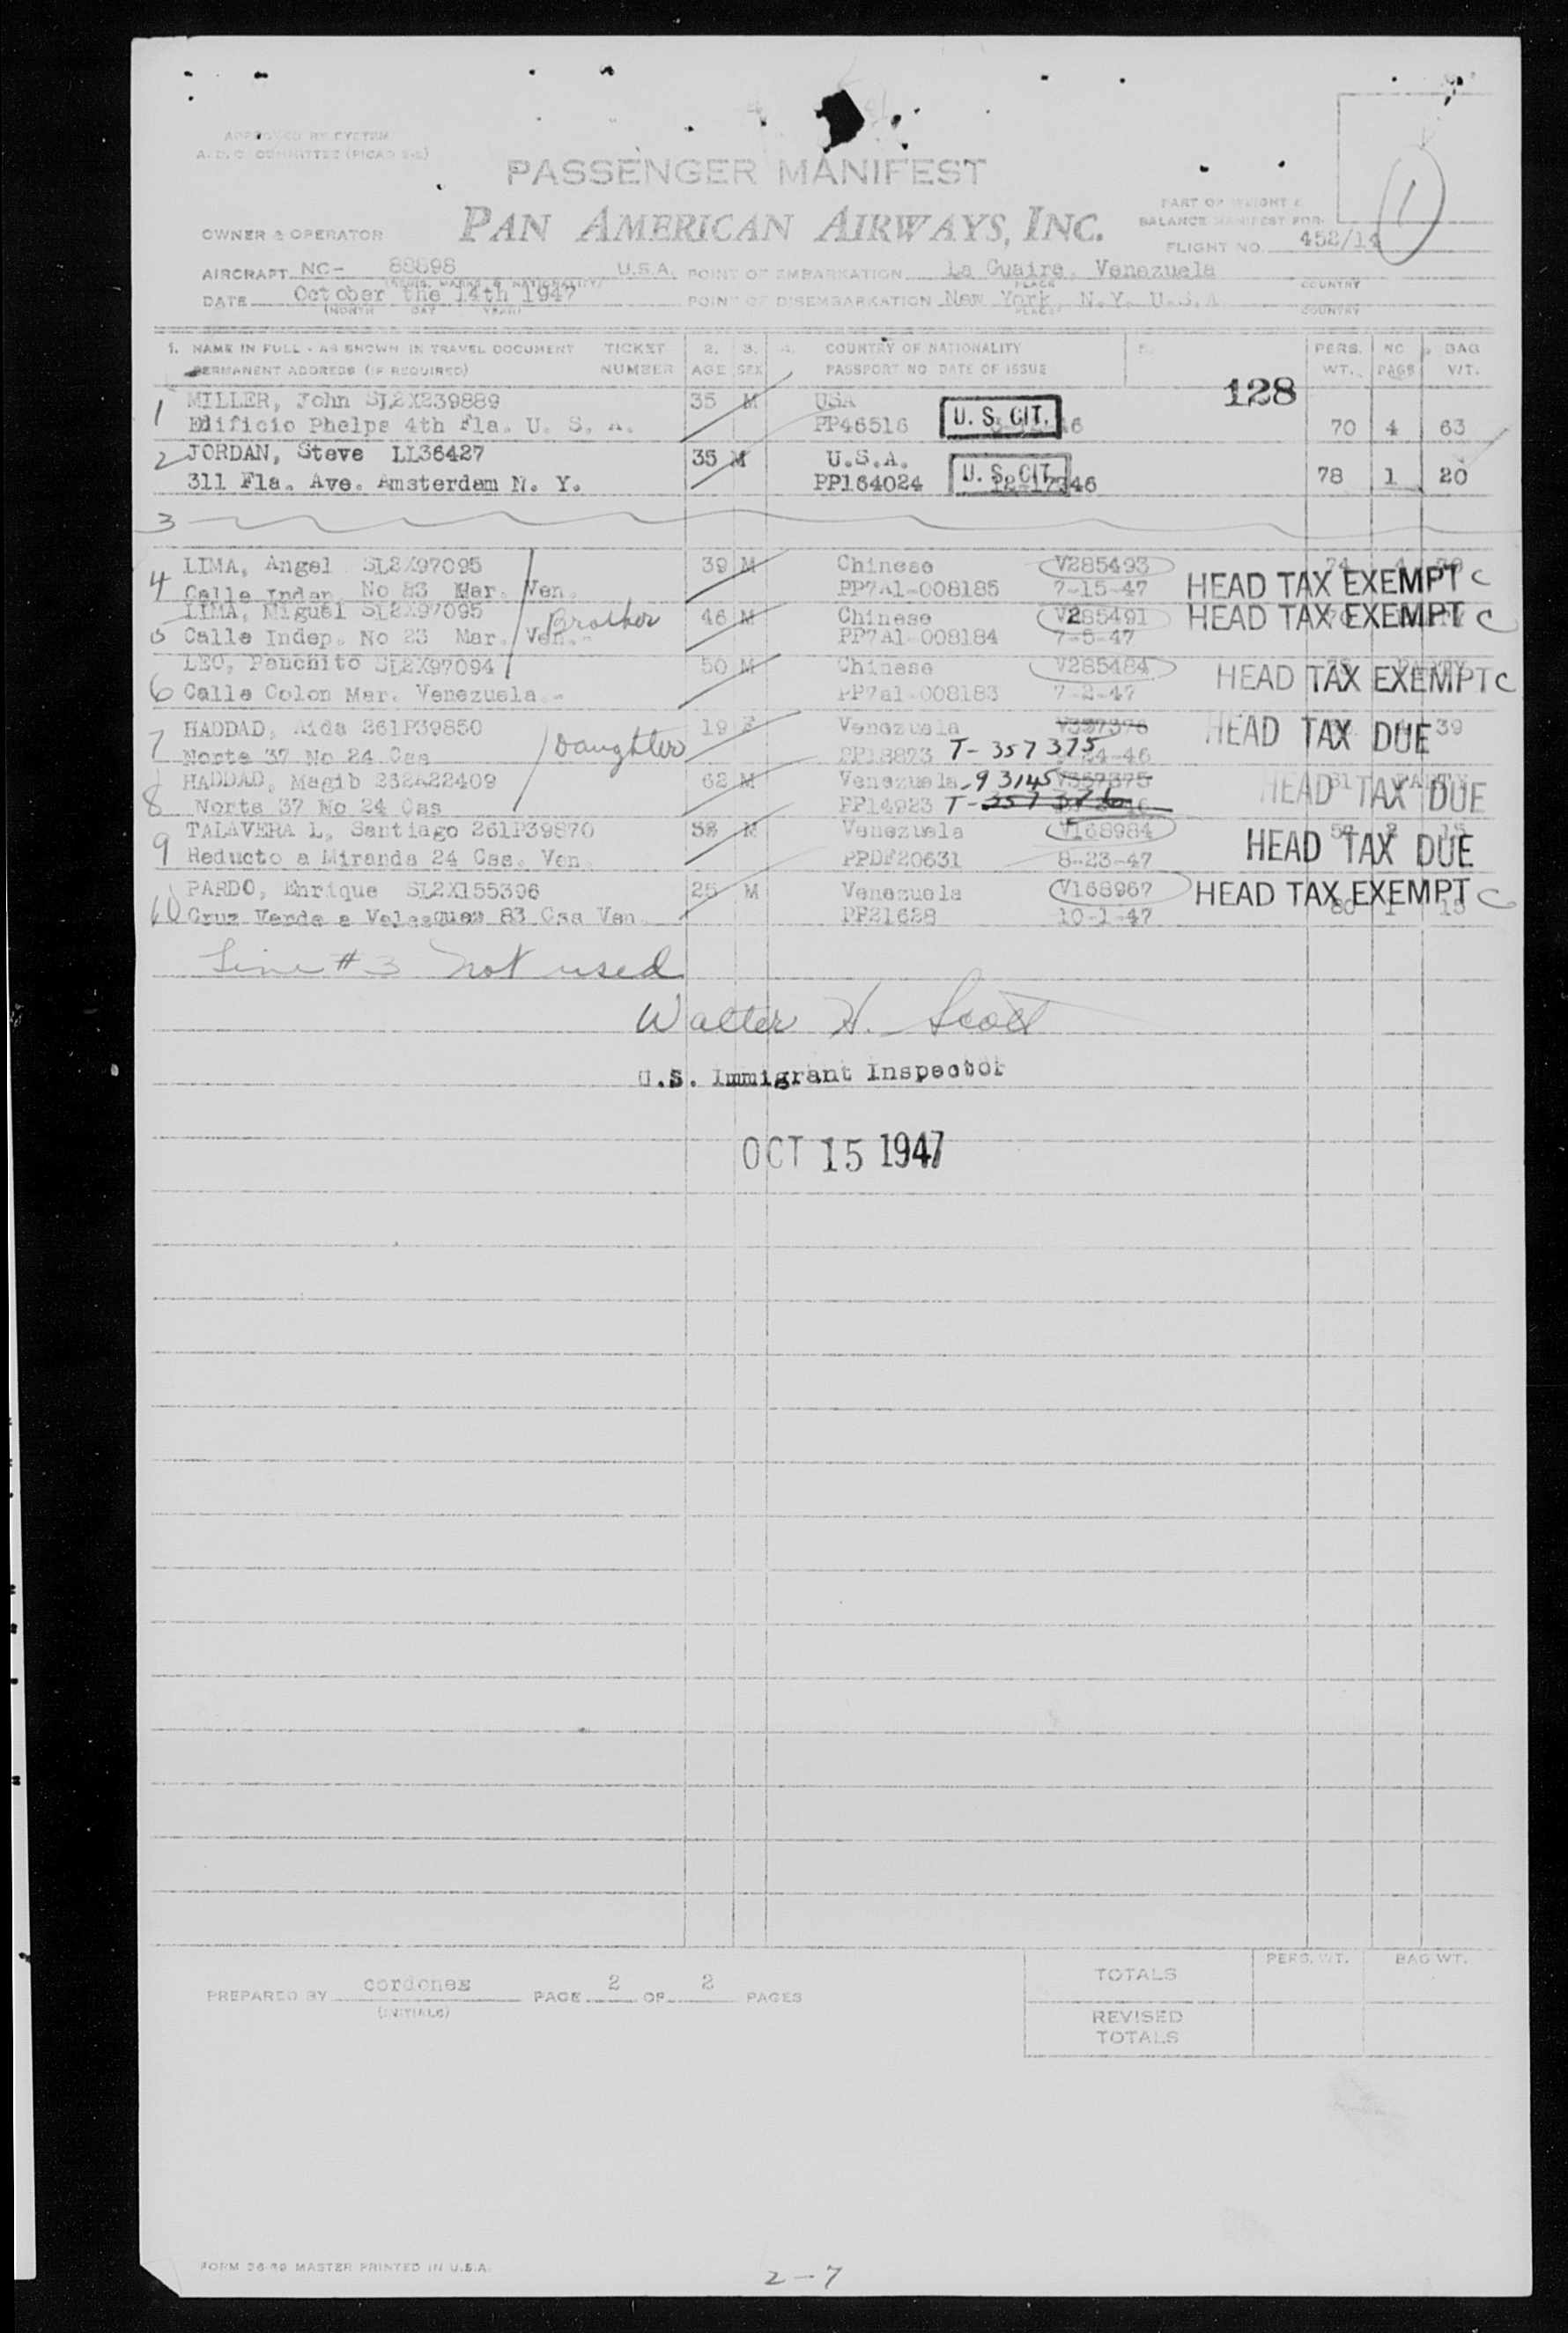 APPROVED BY SYSTEM
A.D.C. COMMITTEE (PICAO 2-2)
PASSENGER MANIFEST
PAN AMERICAN AIRWAYS, INC.
PART OF WEIGHT &
BALANCE MANIFEST FOR
OWNER & OPERATOR
FLIGHT NO. 452/14
1
AIRCRAFT NC- 88898 U.S.A. POINT OF EMBARKATION La Guaira, Venezuela
(REGIS. MARKS & NATIONALITY) PLACE COUNTRY
DATE October the 14th 1947 POINT OF DISEMBARKATION New York, N.Y. U.S.A
(MONTH DAY YEAR) PLACE COUNTRY
1. NAME IN FULL - AS SHOWN IN TRAVEL DOCUMENT TICKET 2. 3. 4. COUNTRY OF NATIONALITY 5. PERS. NO BAG
PERMANENT ADDRESS (IF REQUIRED) NUMBER AGE SEX PASSPORT NO DATE OF ISSUE WT. PAGS WT.
128
1 MILLER, John SL2X239889 35 M USA
Edificio Phelps 4th Fla. U. S. A. PP46516 U. S. CIT. 46 70 4 63
2 JORDAN, Steve LL36427 35 M U.S.A.
311 Fla. Ave. Amsterdam N. Y. PP164024 U. S. CIT. 46 78 1 20
3
4 LIMA, Angel SL2X97095 39 M Chinese V285493
Calle Indep. No 23 Mar. Ven. PP7A1-008185 7-15-47 HEAD TAX EXEMPT C
5 LIMA, Miguel SL2X97095 Brother 46 M Chinese V285491 HEAD TAX EXEMPT C
Calle Indep. No 23 Mar. Ven.- PP7A1-008184 7-5-47
6 LEO, Panchito SL2X97094 50 M Chinese V285484 HEAD TAX EXEMPT C
Calle Colon Mar. Venezuela.- PP7a1-008183 7-2-47
7 HADDAD, Aida 261P39850 19 F Venezuela V357376 HEAD TAX DUE 39
Norte 37 No 24 Css Daughter PP18873 T-357375 24-46
8 HADDAD, Magib 232A22409 62 M Venezuela -93145 V357375 HEAD TAX DUE
Norte 37 No 24 Css PP14923 T-357376
9 TALAVERA L, Santiago 261P39870 M Venezuela V168984 HEAD TAX DUE
Reducto a Miranda 24 Css. Ven. PPDF20631 8-23-47
10 PARDO, Enrique SL2X155396 25 M Venezuela V168967 HEAD TAX EXEMPT C
Cruz Verde a Velasquez 83 Css Ven. PP21628 10-1-47 80 1 15
Line # 3 not used
Walter H. Scott
U.S. Immigrant Inspector
OCT 15 1947
PERS. WT. BAG WT.
TOTALS
PREPARED BY cordones PAGE 2 OF 2 PAGES
(INITIALS)
REVISED
TOTALS
FORM 26-39 MASTER PRINTED IN U.S.A.
2-7